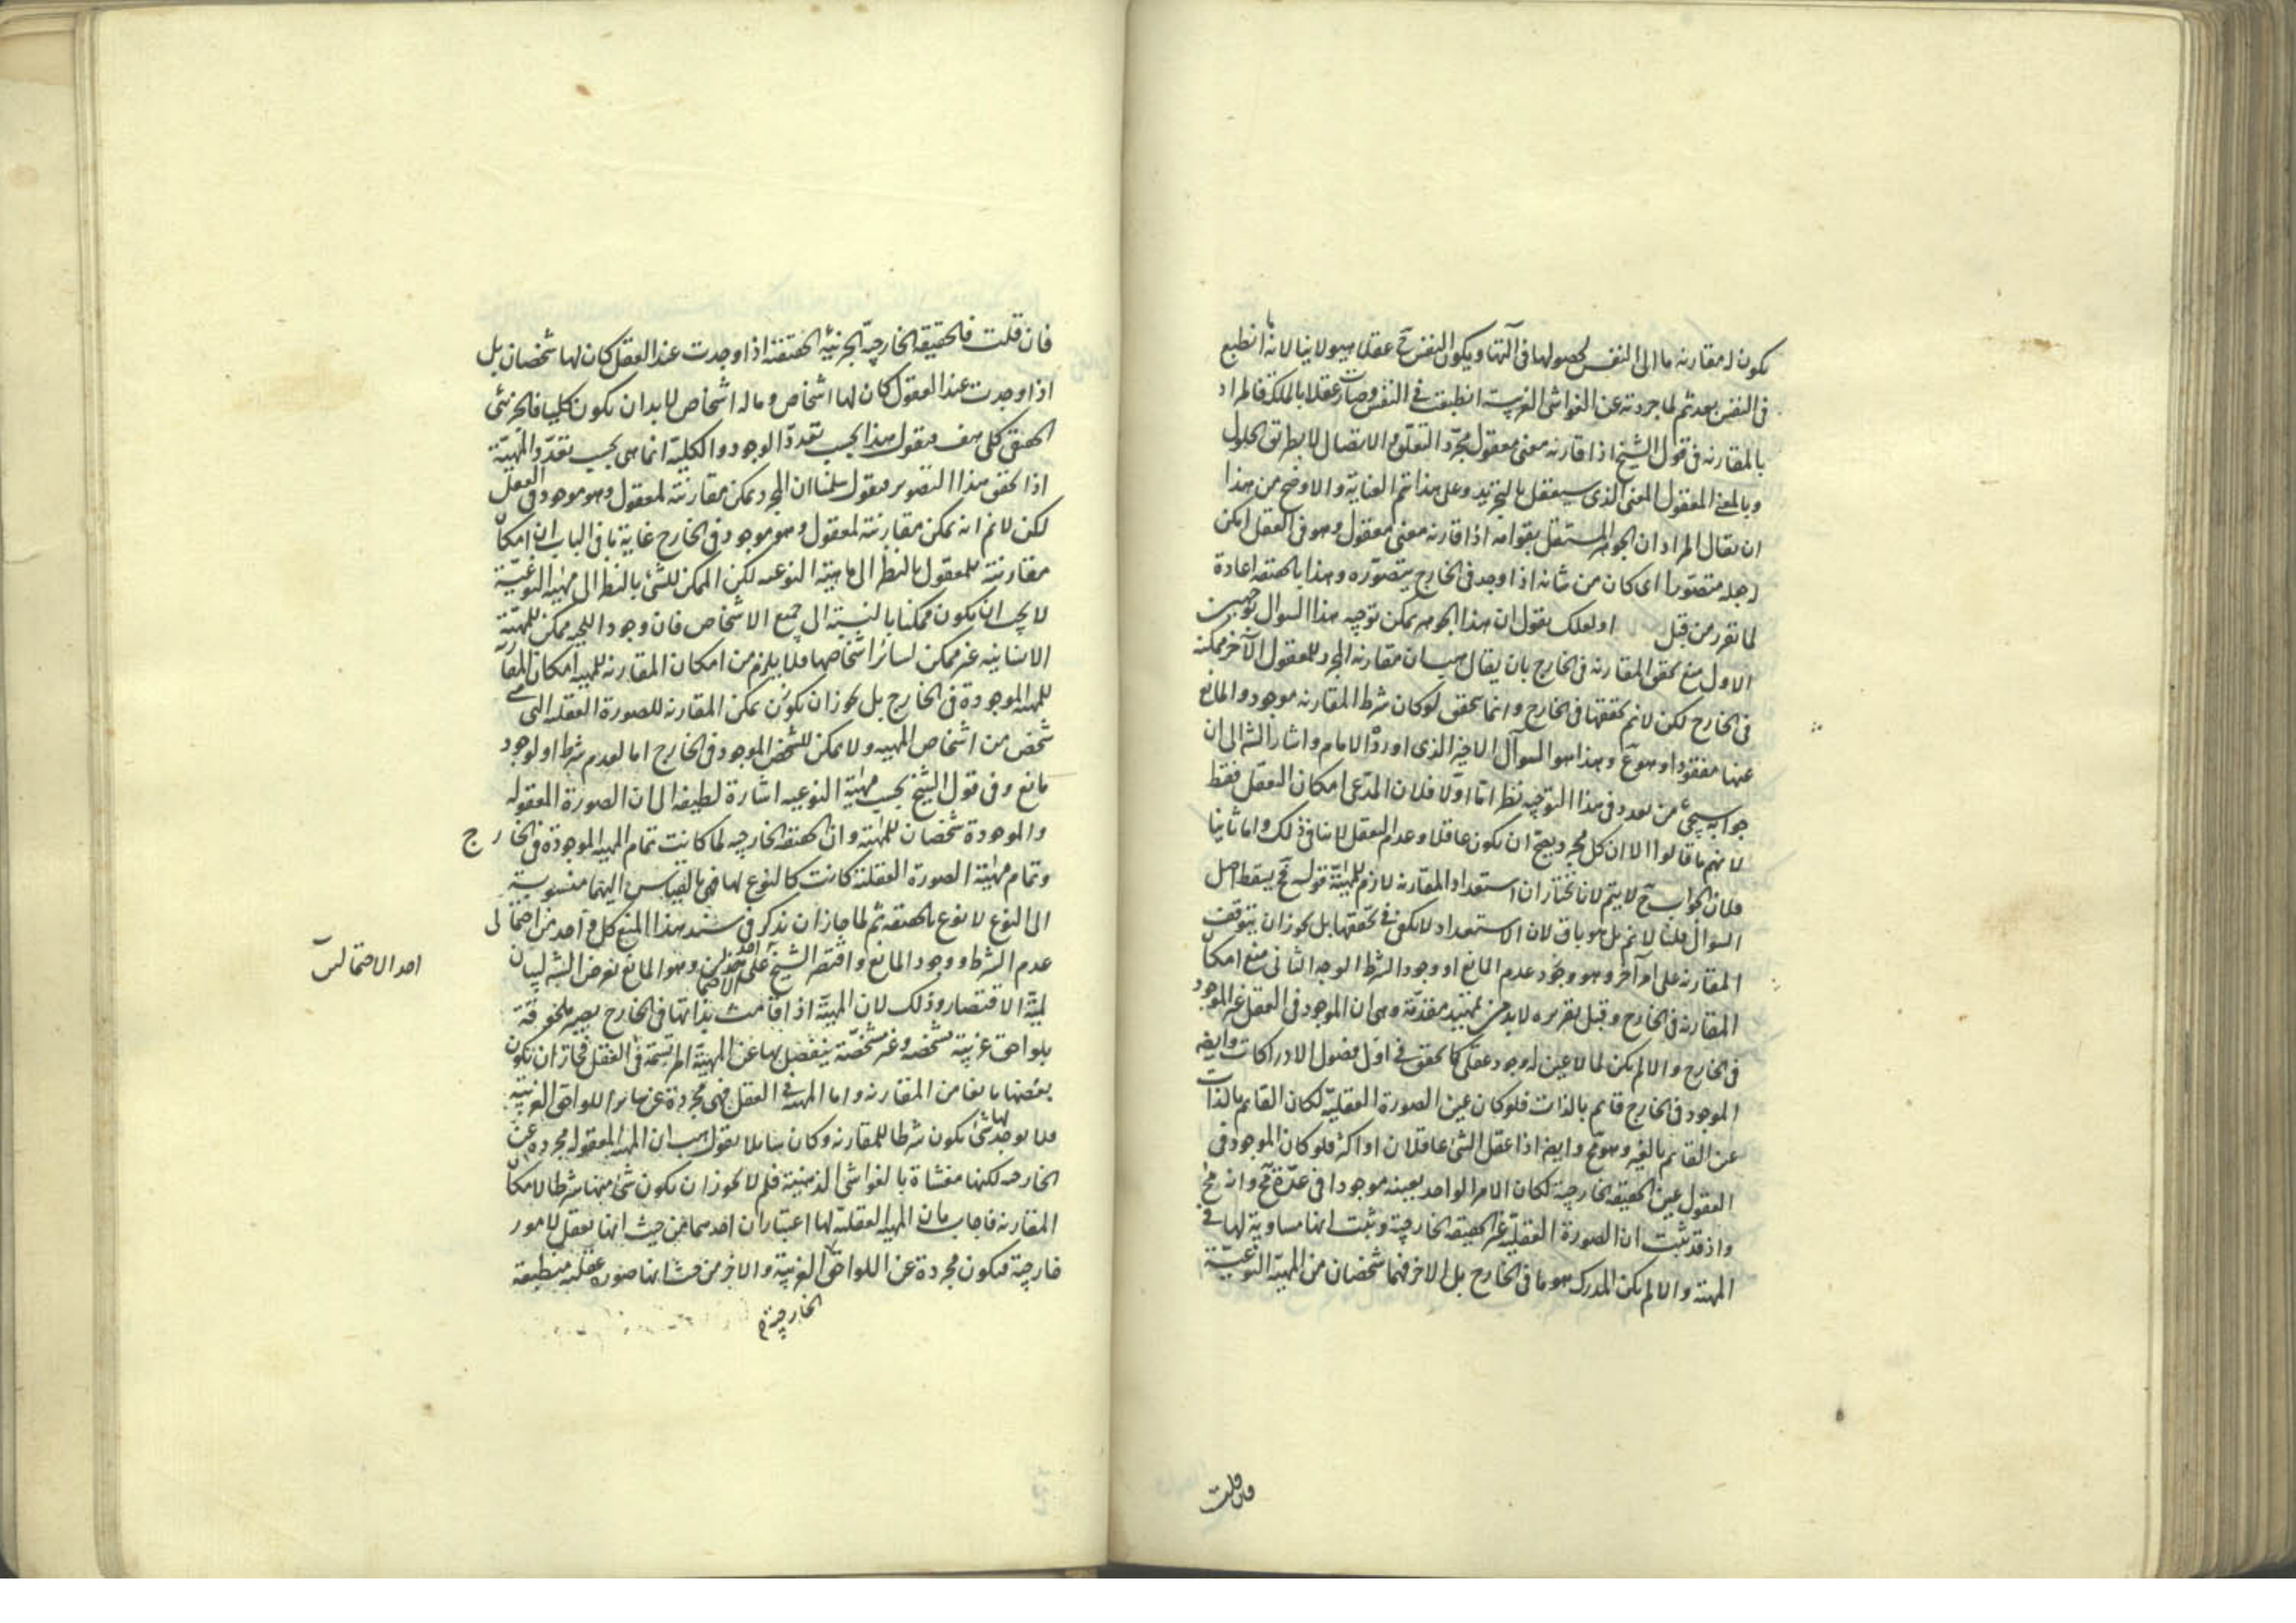 يكون له مقارنة ما الى النفس لحصولها فى آلتها ويكون النفس ح عقلا هيولانيا لانه ما انطبع
فى النفس بعد ثم لما جردته عن الغواشى الغريبة انطبقت فى النفس وصارت عقلا بالملكة فالمراد
بالمقارنة فى قول الشيخ اذا قارنه معنى معقول مجرد التعلق والاتصال لا بطريق الحلول
وبالمعنى المعقول المعنى الذى سيعقل بالتجريد وعلى هذا تتم العناية والاوضح من هذا
ان يقال المراد ان الجوهر المستقل بقوامه اذا قارنه معنى معقول وهو فى العقل امكن
جعله متصورا اى كان من شانه اذا وجد فى الخارج يتصوره وهذا بالحقيقه اعادة
لما تقرر من قبل اولعلك يقول ان هذا الجوهر يمكن توجيه هذا السوال بوجهين
الاول منع تحقق المقارنه فى الخارج بان يقال هب ان مقارنة المجرد للمعقول الآخر ممكنه
فى الخارج لكن لانم تحققها فى الخارج وانما يتحقق لو كان شرط المقارنه موجود والمانع
عنها مفقودا وهو مم وهذا هو السوآل الاخير الذى اورده الامام واشار الشه الى ان
جوابه سيجئ من بعد وفى هذا التوجيه نظر اما اولا فلان المدعى امكان التعقل فقط
لانهم ما قالوا الا ان كل مجرد يصح ان يكون عاقلا وعدم التعقل لا ينافى ذلك واما ثانيا
فلان الجواب ح لا يتم لانا نختار ان استعداد المقارنه لازم للمهيّة قوله فح يسقط اصل
السوال قلنا لانم بل هو باق لان الاستعداد لا يكفى فى تحققها بل يجوز ان يتوقف
المقارنه على امر آخر وهو وجود عدم المانع او وجود الشرط الوجه الثانى منع امكان
المقارنة فى الخارج وقبل تقريره لابد من تمهيد مقدمة وهى ان الموجود فى العقل غير الموجود
فى الخارج والا لم يكن لما لا عين له وجود عقلى كما تحقق فى اول فصول الادراكات وايضا
الموجود فى الخارج قايم بالذات فلو كان عين الصورة العقلية لكان القايم بالذات
عين القايم بالغير وهو مح وايضا اذا عقل الشئ عاقلان او اكثر فلو كان الموجود فى
العقول عين الحقيقه الخارجية لكان الامر الواحد بعينه موجودا فى عدة مح وانه مح
واذ قد ثبت ان الصورة العقلية غير الحقيقه الخارجية وثبت انها مساوية لها فى
المهيّة والا لم يكن المدرك هو ما فى الخارج بل الاخر فهما شخصان من المهيّة النوعيّة
فان قلت
فان قلت فالحقيقة الخارجيّة الجزئية المحققة اذا وجدت عند العقل كان لها شخصان بل
اذا وجدت عند العقول كان لها اشخاص وماله اشخاص لابد ان يكون كليا فالجزئى
الحقيقى كلى هف فنقول هذا بحسب تعدد الوجود والكلية انما هى بحسب تعدد المهيّة
اذا تحقق هذا التصوير فنقول سلمنا ان المجرد يمكن مقارنته لمعقول وهو موجود فى العقل
لكن لانم انه يمكن مقارنته لمعقول وهو موجود فى الخارج غاية ما فى الباب ان امكان
مقارنته للمعقول بالنظر الى ماهيته النوعيه لكن الممكن للشئ بالنظر الى مهيته النوعيّة
لا يجب ان يكون ممكنا بالنسبة الى جميع الاشخاص فان وجود اللحيه ممكن للمهيّة
الانسانيه غير ممكن لسائر اشخاصها فلا يلزم من امكان المقارنه للمهيه امكان المقارنه
للمهية الموجودة فى الخارج بل يجوز ان يكون يمكن المقارنه للصورة العقليه التى هى
شخص من اشخاص المهيه ولا يمكن للشخص الموجود فى الخارج اما لعدم شرط او لوجود
مانع وفى قول الشيخ بحسب مهيّة النوعيه اشارة لطيفه الى ان الصورة المعقوله
والموجودة شخصان للمهيّة وان الحقيقه الخارجيه لما كانت تمام المهيه الموجودة فى الخارج
وتمام مهيّة الصورة العقلية كانت كالنوع لها فهى بالقياس اليهما منسوبة
الى النوع لا نوع بالحقيقه ثم لما جاز ان يذكر فى سند هذا المنع كل واحد من احتمالى
عدم الشرط ووجود المانع واقتصر الشيخ على احد الاحتمالين وهو المانع تعرض الشه لبيان
لميّة الاقتصار وذلك لان المهيّة اذا قامت بذاتها فى الخارج يصير ملحوقة
بلواحق غريبة مشخصه وغير مشخصة ينفصل بها عن المهيّة المرتسمة فى العقل فجاز ان يكون
بعضها مانعا من المقارنه واما المهيه فى العقل فهى مجردة عن سائر اللواحق الغريبة
فلا يوجد لها شئ يكون شرطا للمقارنه وكان سائلا يقول هب ان المهيه المعقوله مجرده عن
الخارجه لكنها مغشاة بالغواشى الذهنية فلم لا يجوز ان يكون شئ منها شرطا لامكان
المقارنه فاجاب بان المهيه العقليه لها اعتباران احدهما من حيث انها تعقل لامور
خارجية فيكون مجردة عن اللواحق الغريبة والاخر من حيث انها صورة عقليه منطبعة
الخارجيّة
احد الاحتمالين